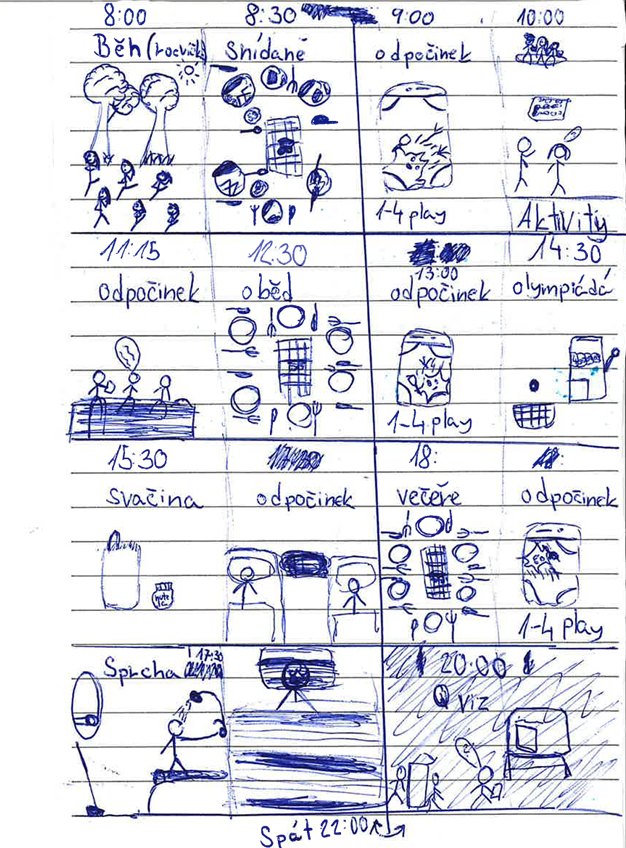 8:00 8:30 9:00 10:00
Běh (rocvička)
Snídaně
odpočinek
1-4 play
Aktivitiy
11:15 12:30 13:00 14:30
odpočinek oběd odpočinek olympiádá
1-4 play
15:30 18:
svačina odpočinek večeře odpočinek
1-4 play
Sprcha 17:30
20:00
Viz
Spát 22:00